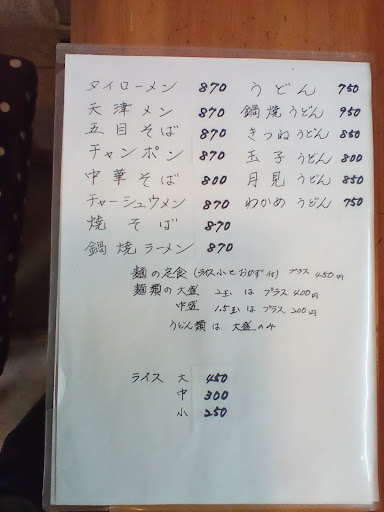 タイローメン 870
天津メン 870
五目そば 870
チャンポン 870
中華そば 800
チャーシュウメン 870
焼そば 870
鍋焼ラーメン 870
うどん 750
鍋焼うどん 950
きつねうどん 850
玉子うどん 800
月見うどん 850
わかめうどん 750
麺の定食(ライス小とおかず付) プラス 450円
麺類の大盛 2玉はプラス400円
中盛 1.5玉はプラス200円
うどん類は大盛のみ
ライス 大 450
中 300
小 250